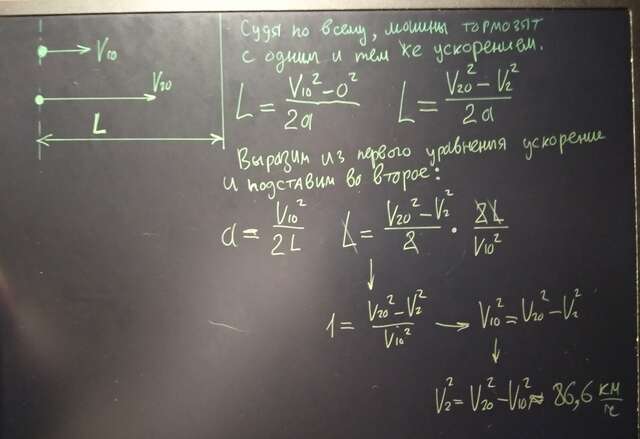 V₁₀
V₂₀
L
Судя по всему, машины тормозят
с одним и тем же ускорением.
L = (V₁₀² - 0²)/2a L = (V₂₀² - V₂²)/2a
Выразим из первого уравнения ускорение
и подставим во второе:
a = V₁₀²/2L L = (V₂₀² - V₂²)/2 · 2L/V₁₀²
↓
1 = (V₂₀² - V₂²)/V₁₀² → V₁₀² = V₂₀² - V₂²
↓
V₂² = V₂₀² - V₁₀² ≈ 86,6 км/ч